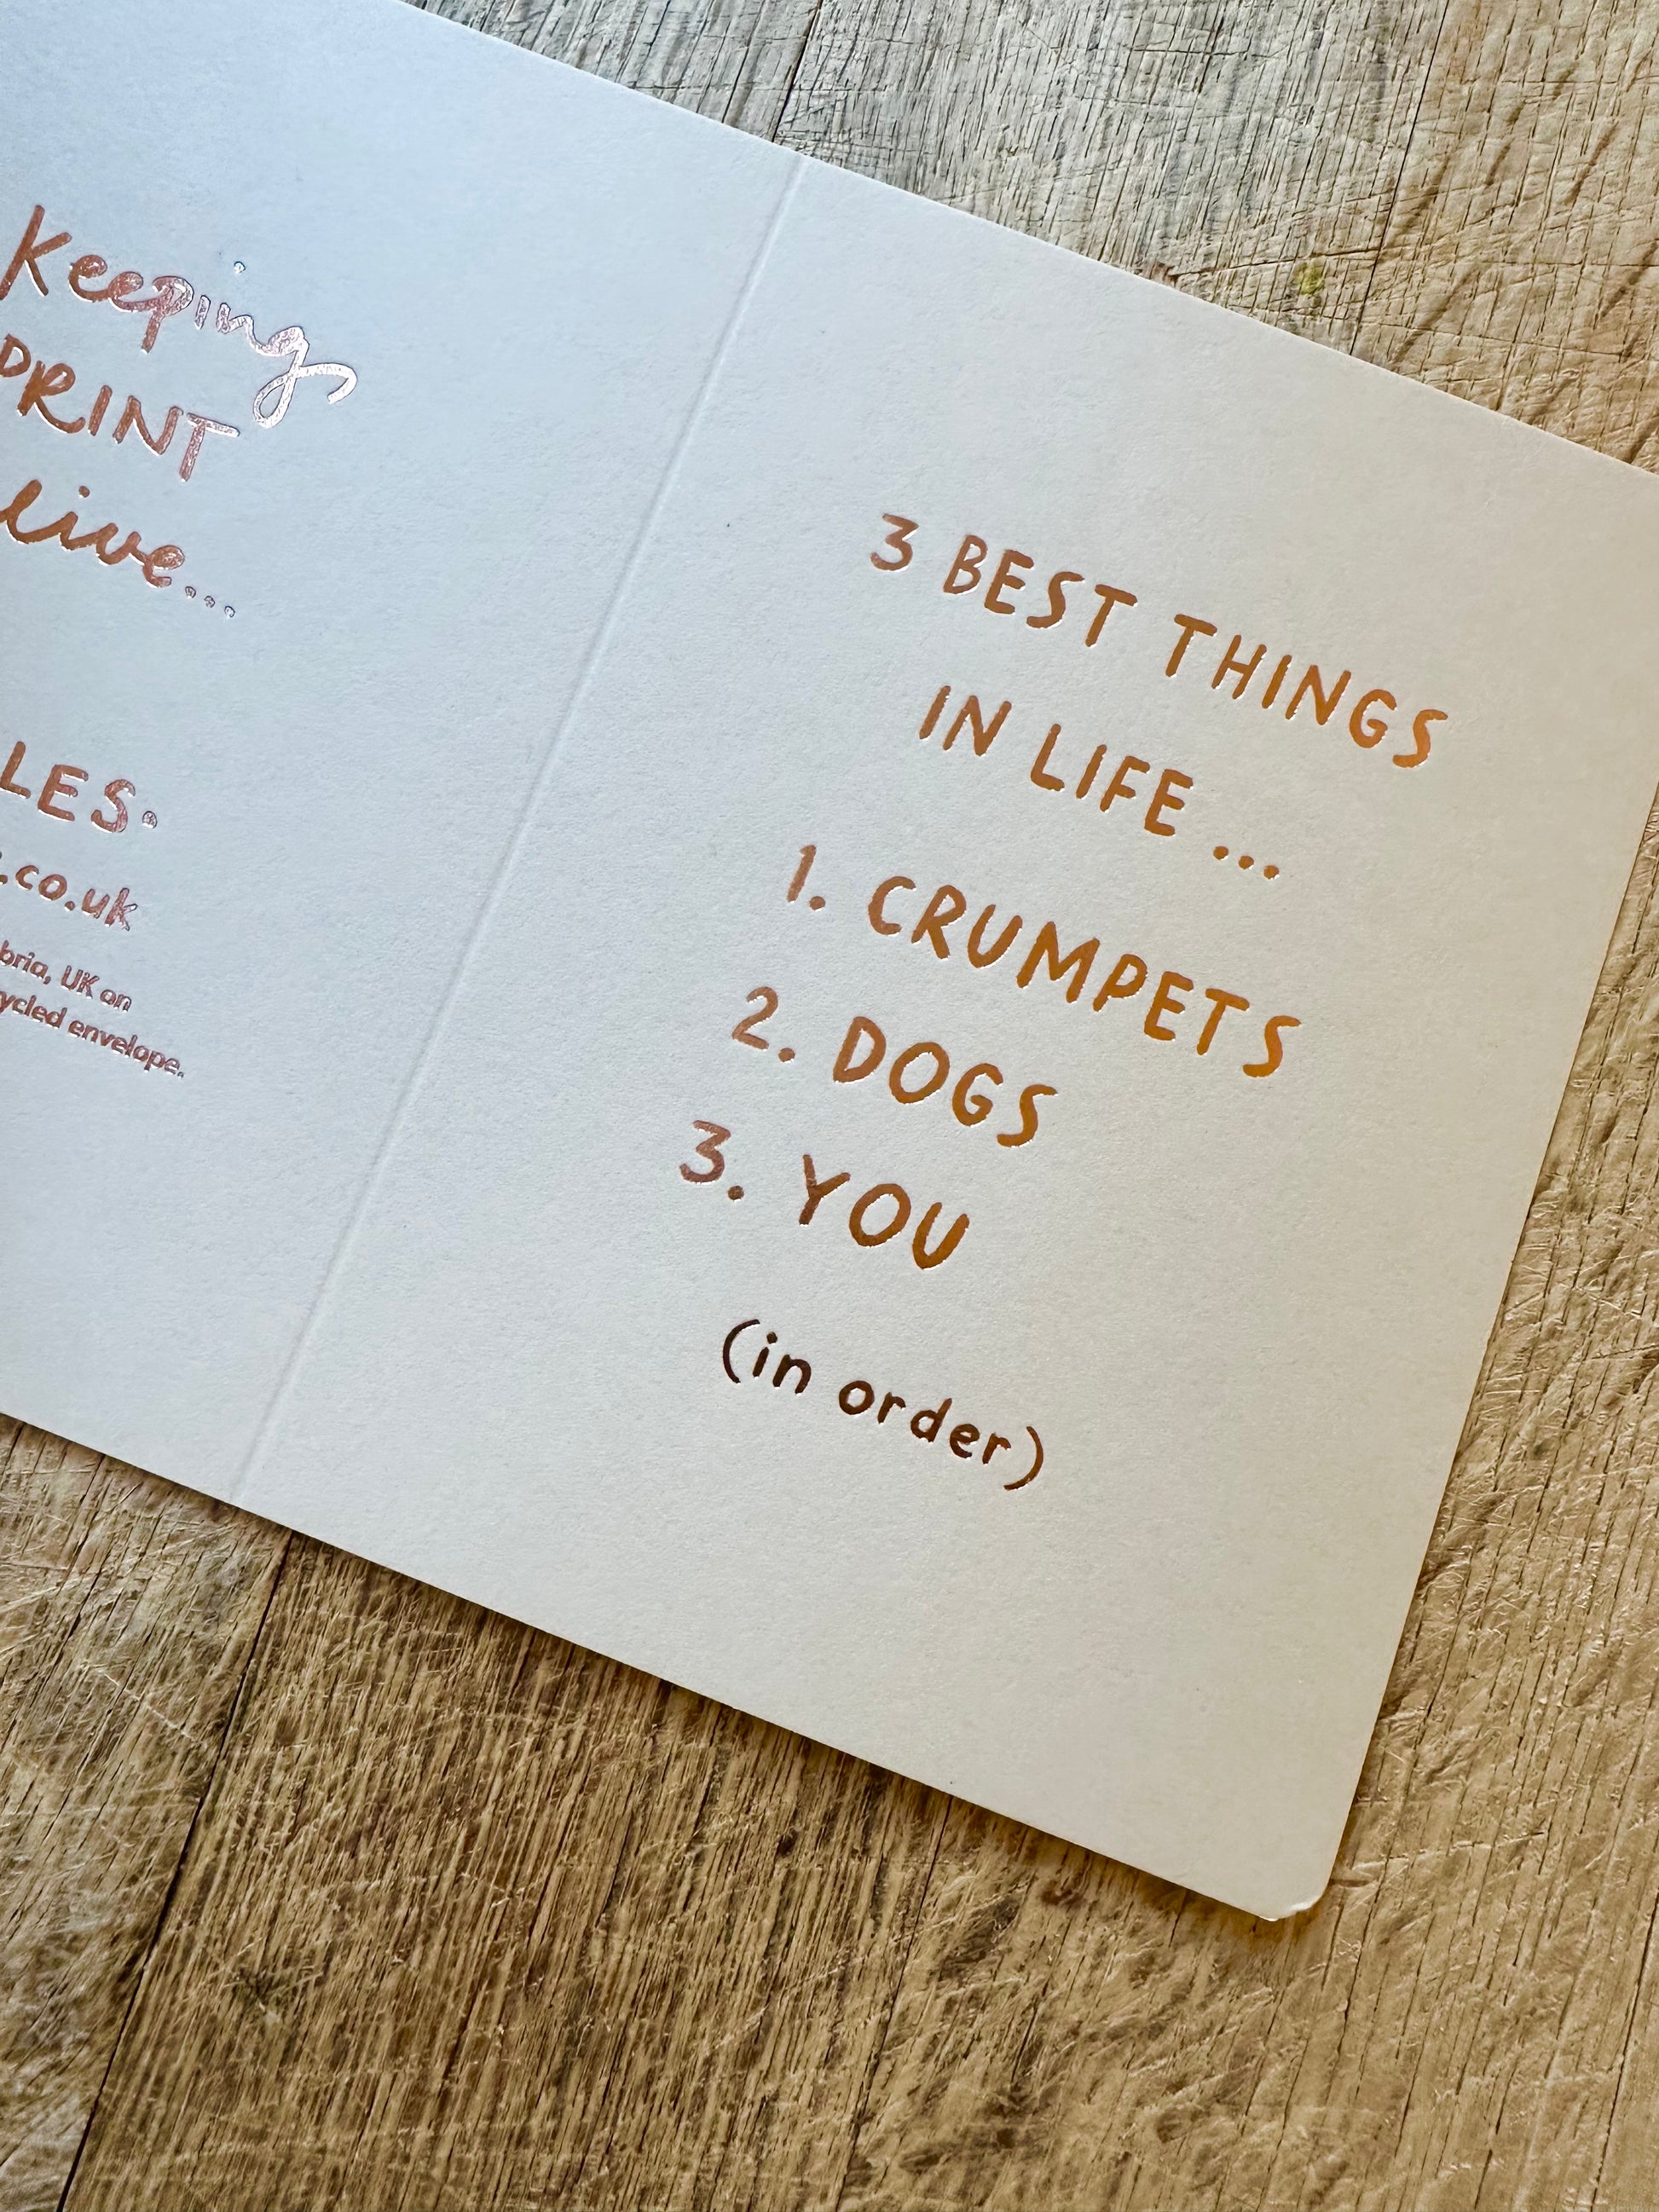 Keeping
PRINT
live...
LES.
.co.uk
bria, UK on
ycled envelope.
3 BEST THINGS
IN LIFE ...
1. CRUMPETS
2. DOGS
3. YOU
(in order)